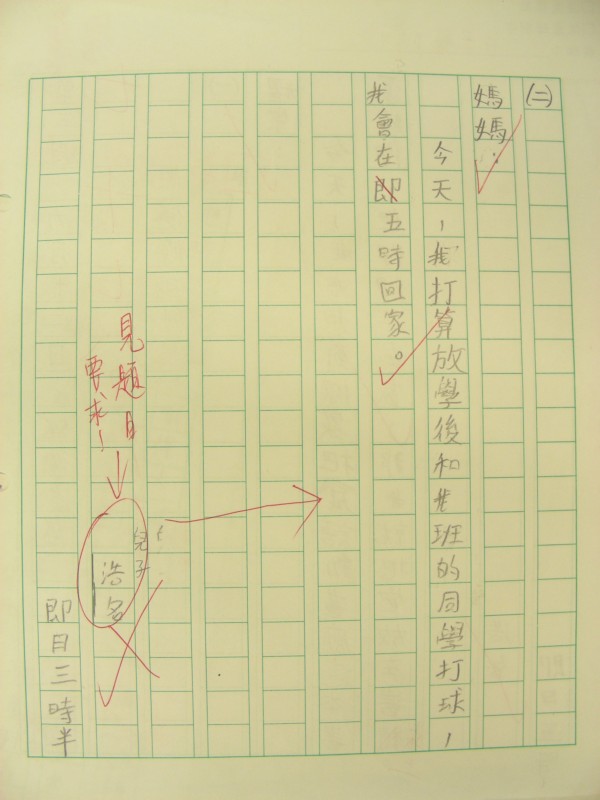 (二)
媽媽:
今天,我打算放學後和我班的同學打球,
我會在即五時回家。
兒子
浩名
即日三時半
見題目
要求!